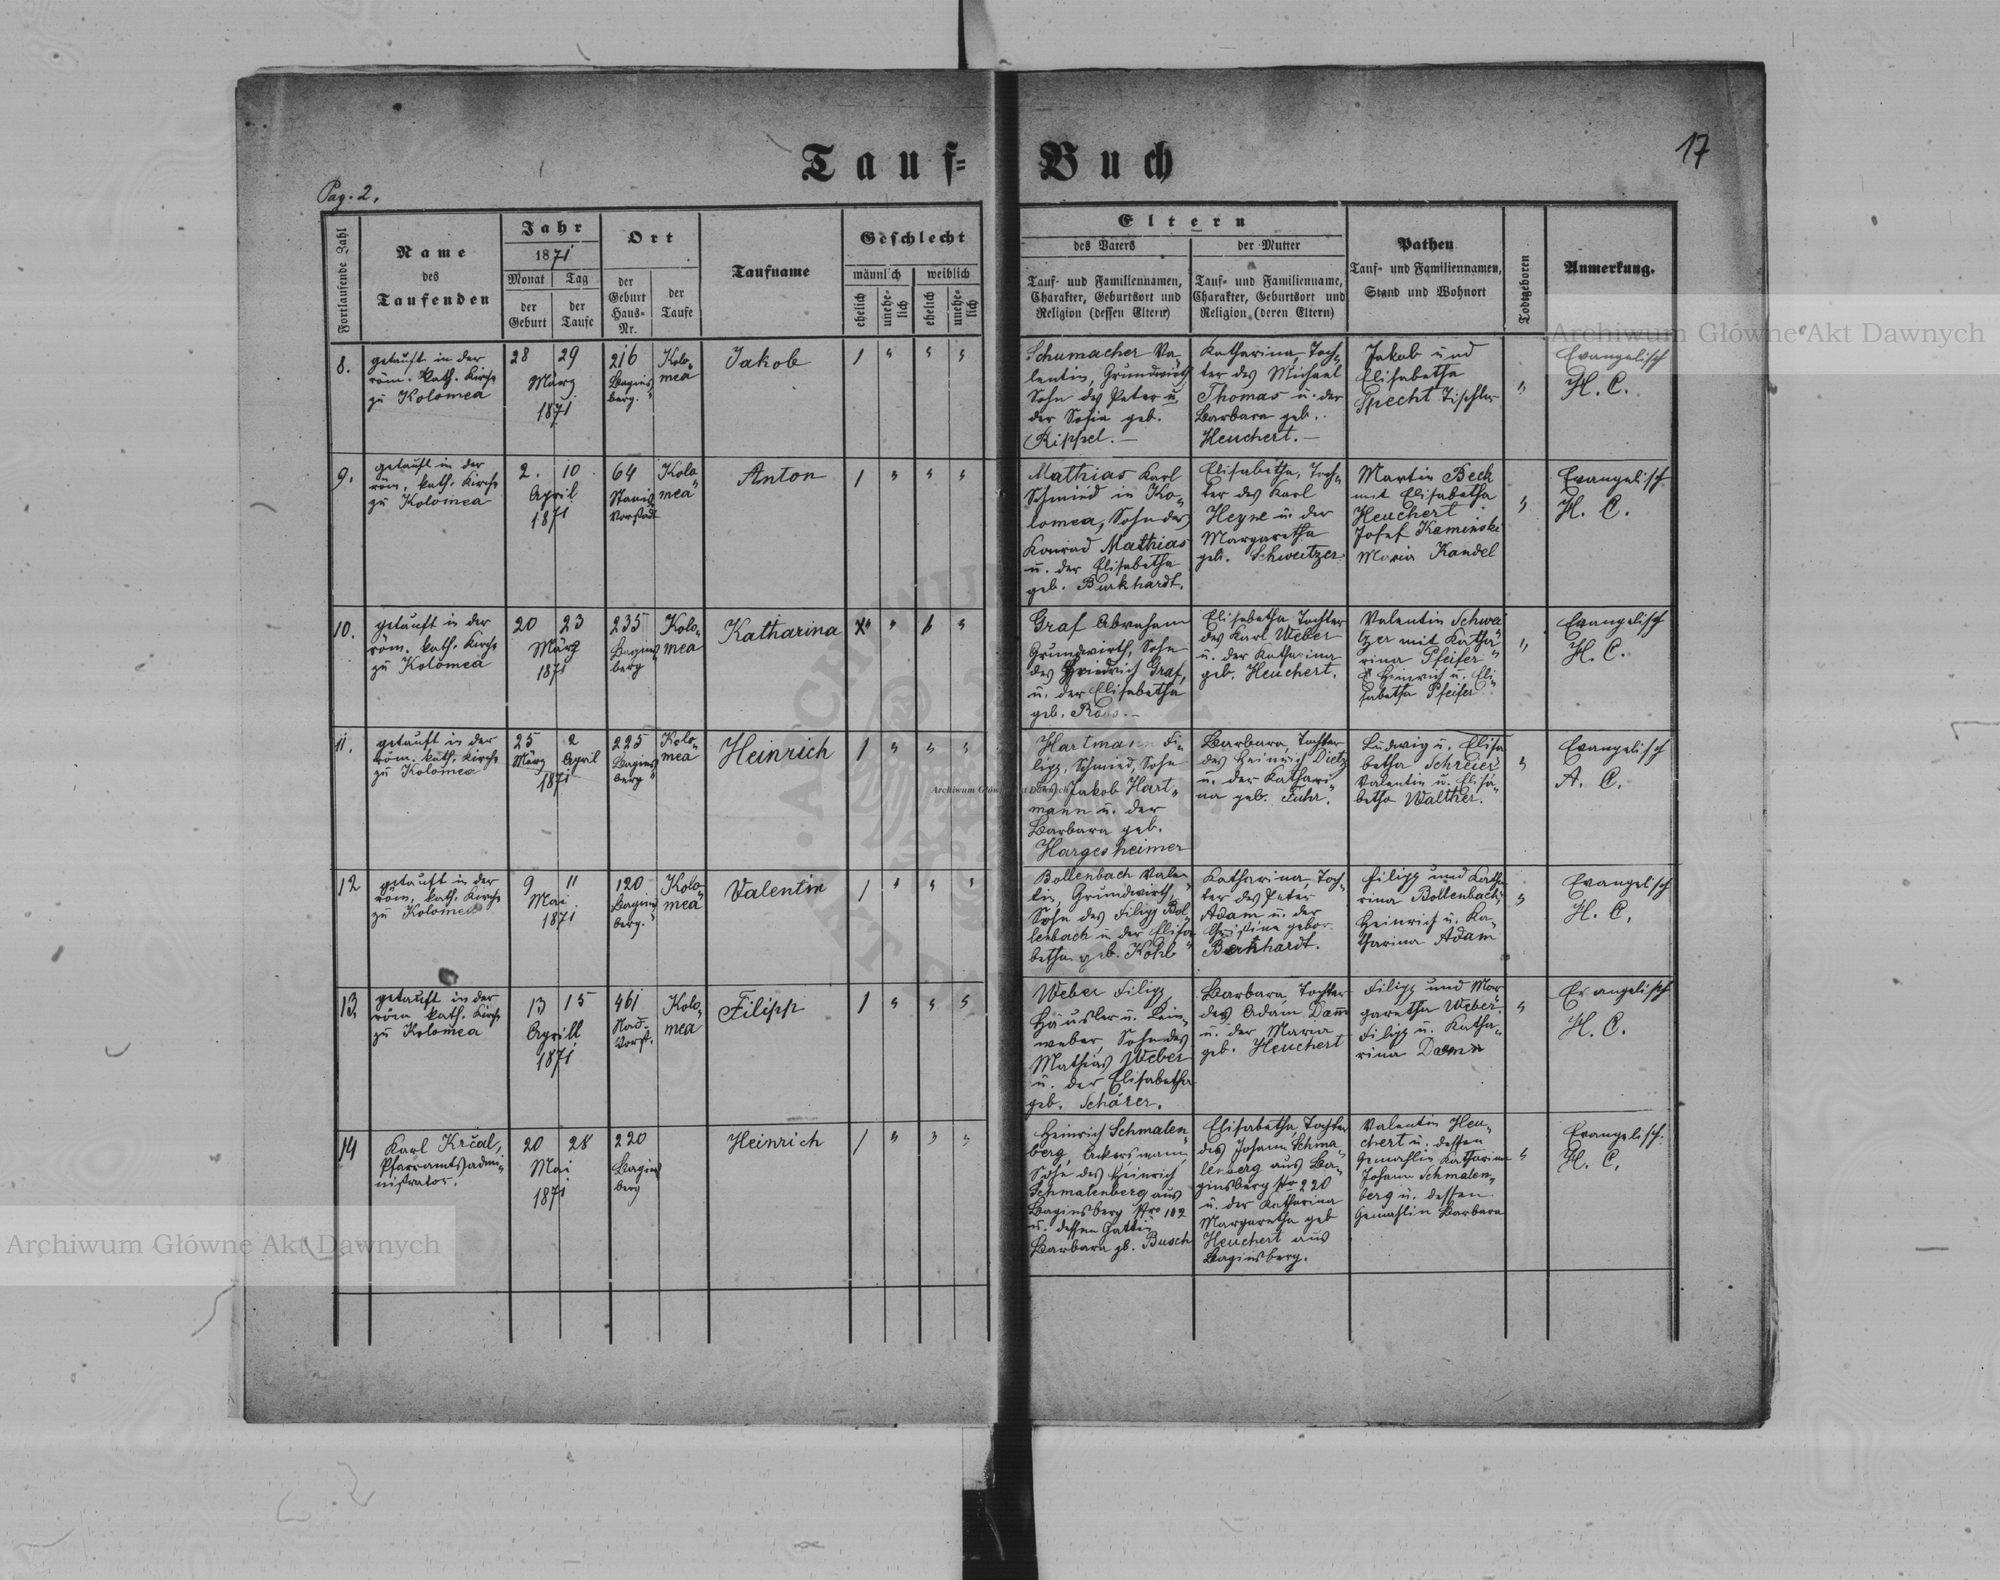 Tauf-Buch
17
Pag. 2.
Fortlaufende Zahl
Name
des
Taufenden
Jahr
1871
Monat
Tag
der
Geburt
der
Taufe
Ort
der
Geburt
Haus-
Nr.
der
Taufe
Taufname
Geschlecht
männlich
weiblich
ehelich
unehe-
lich
ehelich
unehe-
lich
Eltern
des Vaters
der Mutter
Tauf- und Familiennamen,
Charakter, Geburtsort und
Religion (dessen Eltern)
Tauf- und Familienname,
Charakter, Geburtsort und
Religion (deren Eltern)
Pathen
Tauf- und Familiennamen,
Stand und Wohnort
Todtgeboren
Anmerkung.
8.
getauft in der
röm. kath. Kirche
zu Kolomea
28 29
März
1871
216
Bagins
berg.
Kolo-
mea
Jakob
1 " " "
Schumacher Va-
lentin, Grundwirth
Sohn des Peter u.
der Sofia geb.
Rippel. —
Katharina, Toch-
ter des Michael
Thomas u. der
Barbara geb.
Heuchert. —
Jakob und
Elisabetha
Specht Tischler
"
Evangelisch
H. C.
9.
getauft in der
röm. kath. Kirche
zu Kolomea
2. 10
April
1871
64
Stanis
Vorstadt
Kolo
mea
Anton
1 " " "
Mathias Karl
Schmied in Ko-
lomea, Sohn des
Konrad Mathias
u. der Elisabetha
geb. Burkhardt.
Elisabetha, Toch-
ter des Karl
Heyne u. der
Margaretha
geb. Schweitzer
Martin Beck
mit Elisabetha
Heuchert
Josef Kaminski
Maria Kandel
"
Evangelisch
H. C.
10.
getauft in der
röm. kath. Kirche
zu Kolomea
20 23
März
1871
235
Bagins
berg
Kolo-
mea
Katharina
" 1 "
Graf Abraham
Grundwirth, Sohn
des Friedrich Graf,
u. der Elisabetha
geb. Roos. —
Elisabetha Tochter
des Karl Weber
u. der Katharina
geb. Heuchert.
Valentin Schwei
tzer mit Katha
rina Pfeifer
Heinrich u. Eli-
sabetha Pfeifer
"
Evangelisch
H. C.
11.
getauft in der
röm. kath. Kirche
zu Kolomea
25 2
März April
1871
225
Bagins
berg
Kolo-
mea
Heinrich
1 " " "
Hartmann Fi-
lipp, Schmied, Sohn
des Jakob Hart-
mann u. der
Barbara geb.
Hargesheimer
Barbara, Tochter
des Heinrich Dietz
u. der Kathari
na geb. Fuhr.
Ludwig u. Elisa
betha Schreier
Valentin u. Elisa-
betha Walther.
"
Evangelisch
A. C.
12
getauft in der
röm. kath. Kirche
zu Kolomea
9 11
Mai
1871
120
Bagins
berg.
Kolo
mea
Valentin
1 " " "
Bollenbach Valen-
tin, Grundwirth,
Sohn des Filipp Bol-
lenbach u. der Elisa
betha geb. Kohl
Katharina, Toch-
ter des Peter
Adam u. der
Christina gebor.
Bernhardt.
Filipp und Katha
rina Bollenbach
Heinrich u. Ka-
tharina Adam
"
Evangelisch
H. C.
13.
getauft in der
röm. kath. Kirche
zu Kolomea
13 15
Aprill
1871
461
Nad-
Vorst.
Kolo-
mea
Filipp
1 " " "
Weber Filipp
Häusler u. Lein-
weber, Sohn des
Mathias Weber
u. der Elisabetha
geb. Schärer.
Barbara, Tochter
des Adam Damm
u. der Maria
geb. Heuchert
Filipp und Mar
garetha Weber
Filipp u. Katha-
rina Damm
"
Evangelisch
H. C.
14
Karl Krčal,
Pfarramtsadmi-
nistrator.
20 28
Mai
1871
220
Bagins
berg
Heinrich
1 " " "
Heinrich Schmalen-
berg, Ackersmann,
Sohn des Heinrich
Schmalenberg aus
Baginsberg Nro 102
u. dessen Gattin
Barbara gb. Busch
Elisabetha, Tochter
des Johann Schma-
lenberg aus Ba-
ginsberg Nro 220
u. der Katharina
Margaretha geb
Heuchert aus
Baginsberg.
Valentin Heu-
chert u. dessen
Gemahlin Katharina
Johann Schmalen-
berg u. dessen
Gemahlin Barbara
"
Evangelisch:
H. C.
Archiwum Główne Akt Dawnych
Archiwum Główne Akt Dawnych
Archiwum Główne Akt Dawnych